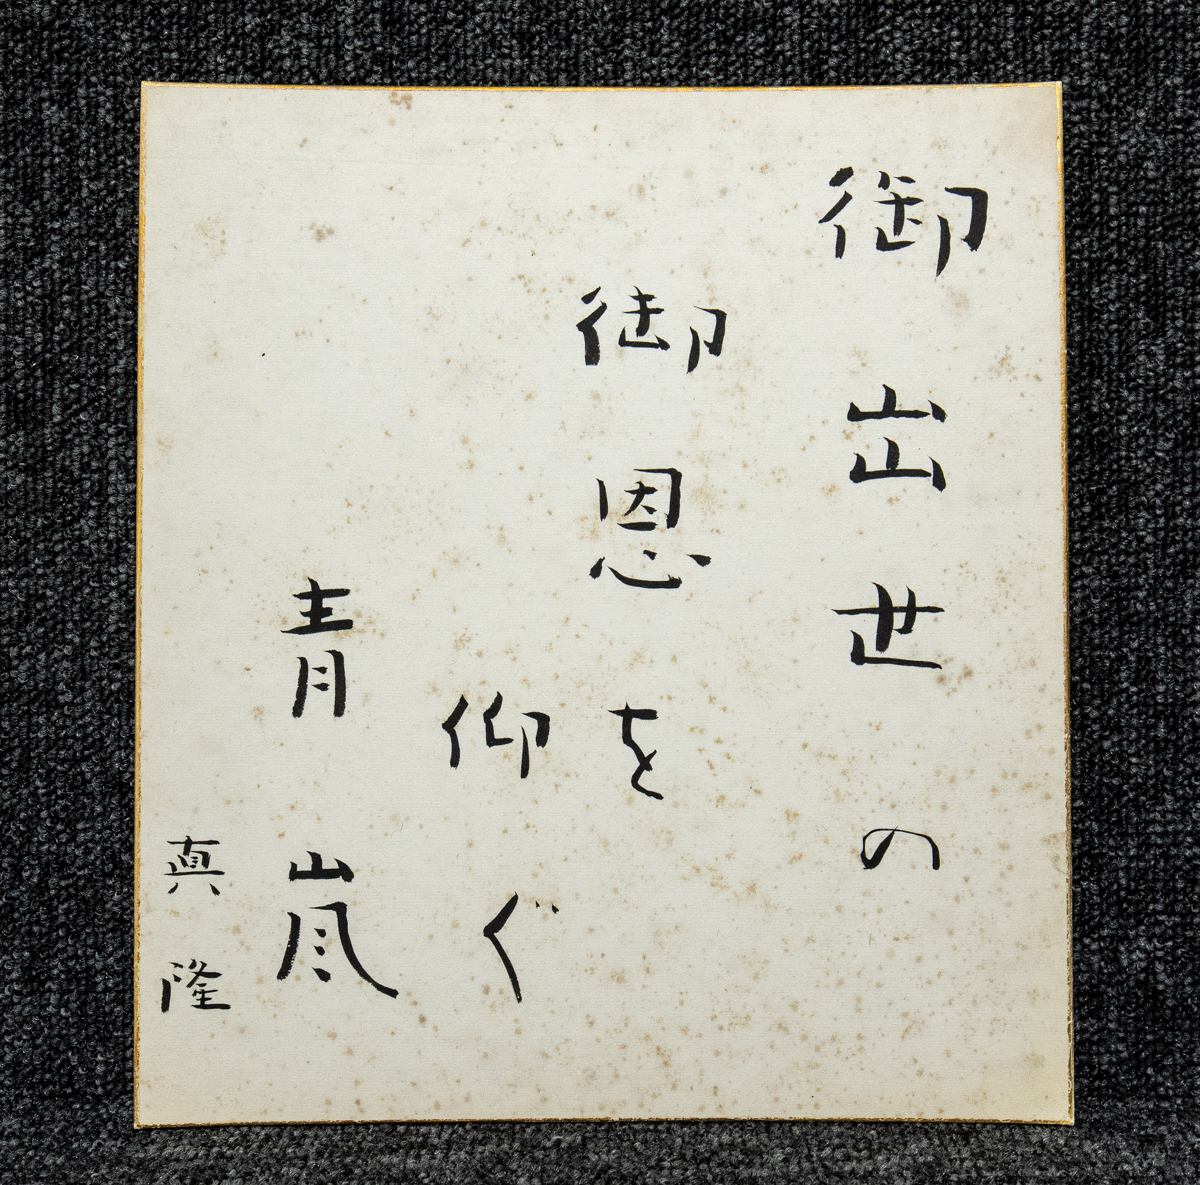 御出世の
御恩を
仰ぐ
青嵐
真隆